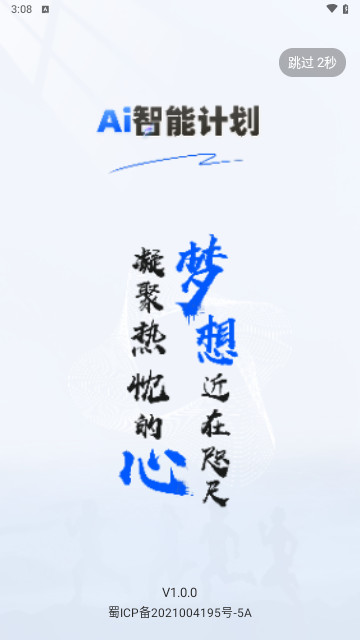 3:08
跳过 2秒
Ai智能计划
梦想近在咫尺
凝聚热忱的心
V1.0.0
蜀ICP备2021004195号-5A